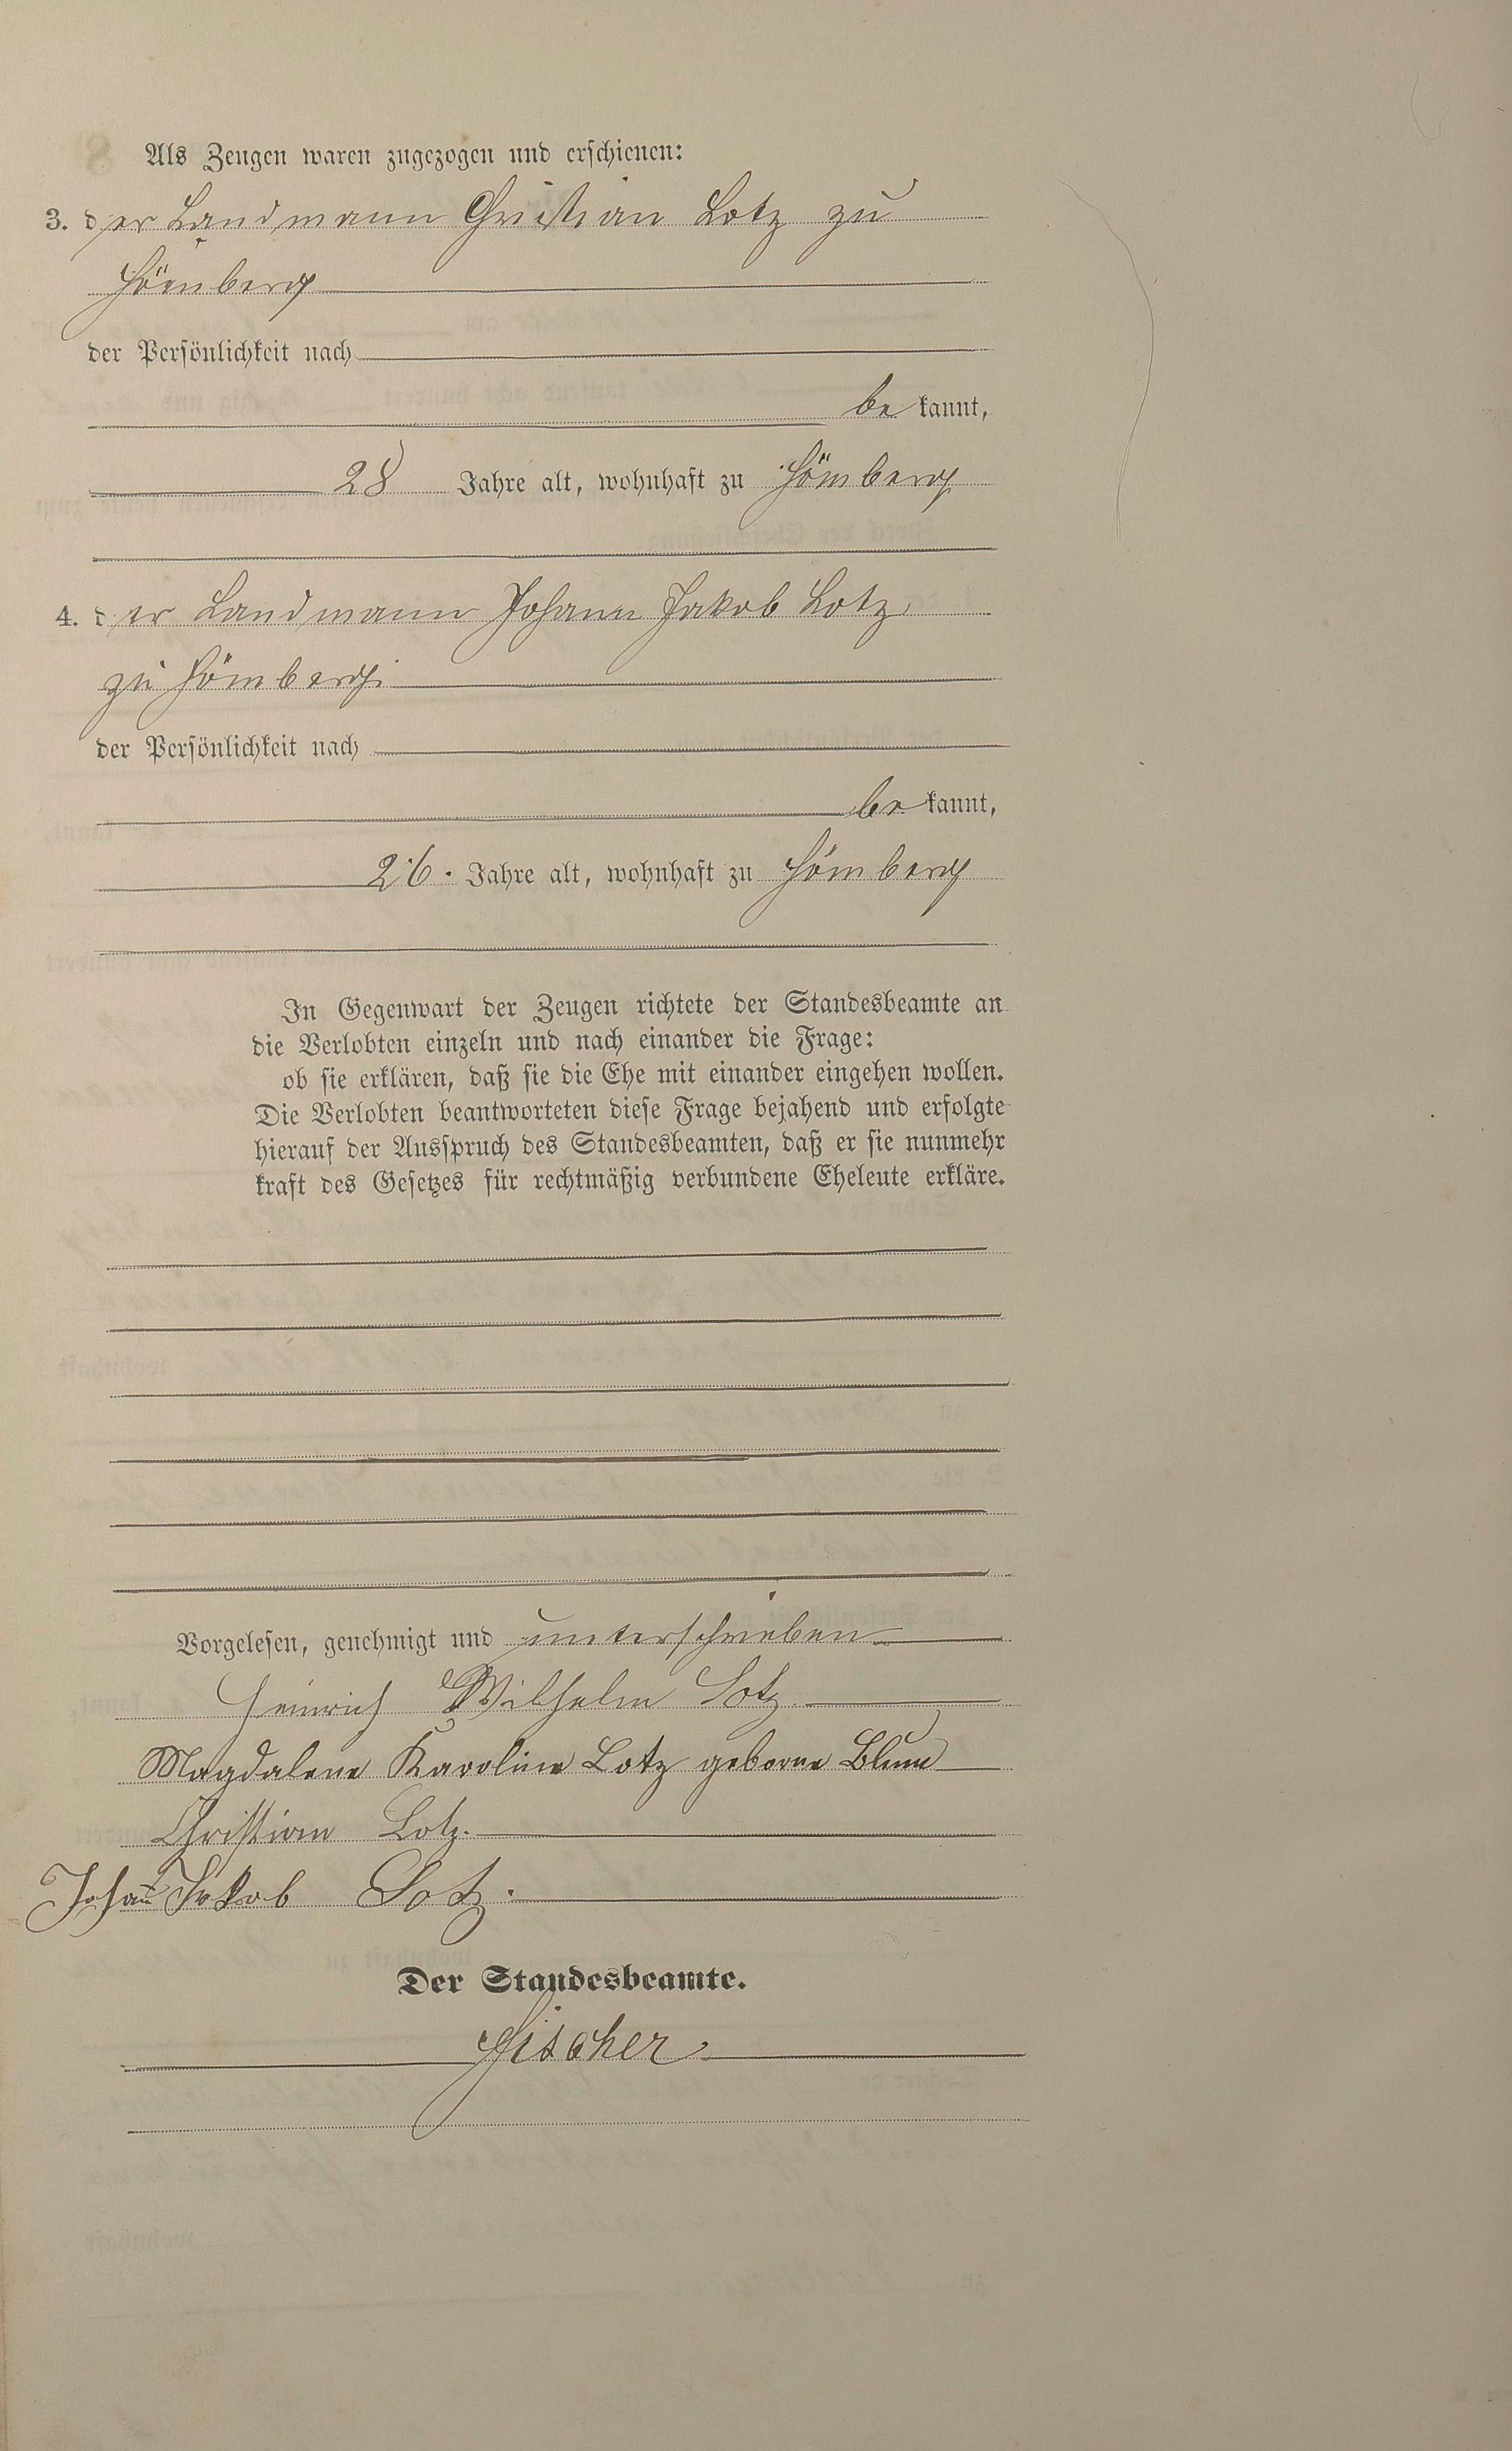 Als Zeugen waren zugezogen und erschienen:
3. der Landmann Christian Lotz zu
Hömberg
der Persönlichkeit nach
be kannt,
28 Jahre alt, wohnhaft zu Hömberg
4. der Landmann Johann Jakob Lotz
zu Hömberg
der Persönlichkeit nach
be kannt,
26. Jahre alt, wohnhaft zu Hömberg
In Gegenwart der Zeugen richtete der Standesbeamte an
die Verlobten einzeln und nach einander die Frage:
ob sie erklären, daß sie die Ehe mit einander eingehen wollen.
Die Verlobten beantworteten diese Frage bejahend und erfolgte
hierauf der Ausspruch des Standesbeamten, daß er sie nunmehr
kraft des Gesetzes für rechtmäßig verbundene Eheleute erkläre.
Vorgelesen, genehmigt und unterschrieben
Heinrich Wilhelm Lotz
Magdalene Karoline Lotz geborne Blum
Christian Lotz.
Johann Jakob Lotz.
Der Standesbeamte.
Fischer